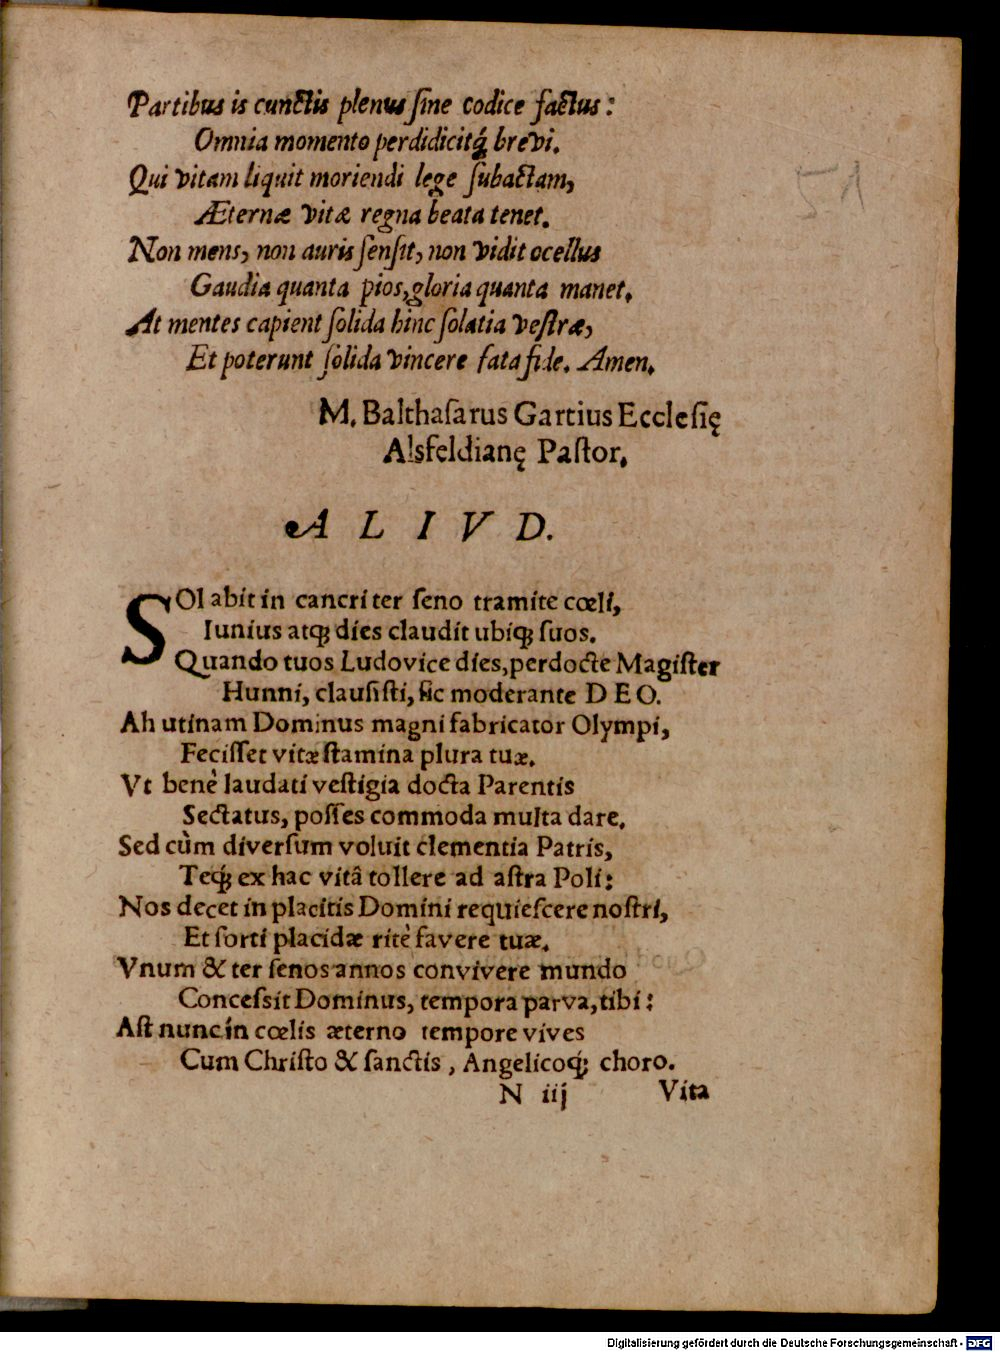 Partibus is cunctis plenus ſine codice factus:
Omnia momento perdidicitq́; brevi.
Qui vitam liquit moriendi lege ſubactam,
Æternæ vitæ regna beata tenet.
Non mens, non auris ſenſit, non vidit ocellus
Gaudia quanta pios, gloria quanta manet.
At mentes capient ſolida hinc ſolatia veſtræ,
Et poterunt ſolida vincere fata fide. Amen.
M. Balthaſarus Gartius Eccleſię
Alsfeldianę Paſtor.
ALIVD.
SOl abit in cancri ter ſeno tramite cœli,
Iunius atq; dies claudit ubiq; ſuos.
Quando tuos Ludovice dies, perdocte Magiſter
Hunni, clauſiſti, ſic moderante DEO.
Ah utinam Dominus magni fabricator Olympi,
Feciſſet vitæ ſtamina plura tuæ.
Vt benè laudati veſtigia docta Parentis
Sectatus, poſſes commoda multa dare.
Sed cùm diverſum voluit clementia Patris,
Teq́; ex hac vitâ tollere ad aſtra Poli:
Nos decet in placitis Domini requieſcere noſtri,
Et ſorti placidæ ritè favere tuæ.
Vnum & ter ſenos annos convivere mundo
Conceſsit Dominus, tempora parva, tibi:
Aſt nunc in cœlis æterno tempore vives
Cum Chriſto & ſanctis, Angelicoq́; choro.
N iij Vita
51
Digitalisierung gefördert durch die Deutsche Forschungsgemeinschaft - DFG